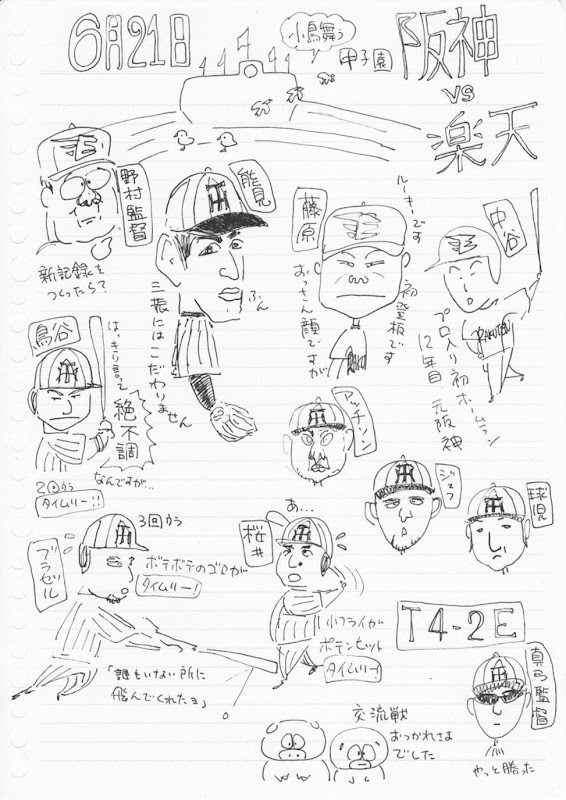 6月21日
小鳥舞う
甲子園
阪神
VS
楽天
野村監督
新記録を
つくったら?
能見
ふん
三振にはこだわりません
藤原
ルーキーです
初登板です
おっさん顔ですが
中谷
プロ入り初ホームラン
12年目 元阪神
鳥谷
はっきり言って
絶不調
なんですが…
2回うら
タイムリー!!
アッチソン
ジェフ
球児
ブラゼル
3回うら
ボテボテのゴロが
タイムリー!
「誰もいない所に
飛んでくれたヨ」
桜井
あ…
小フライが
ポテンヒット
タイムリー!
T4-2E
真弓監督
やっと勝った
交流戦
おつかれさま
でした